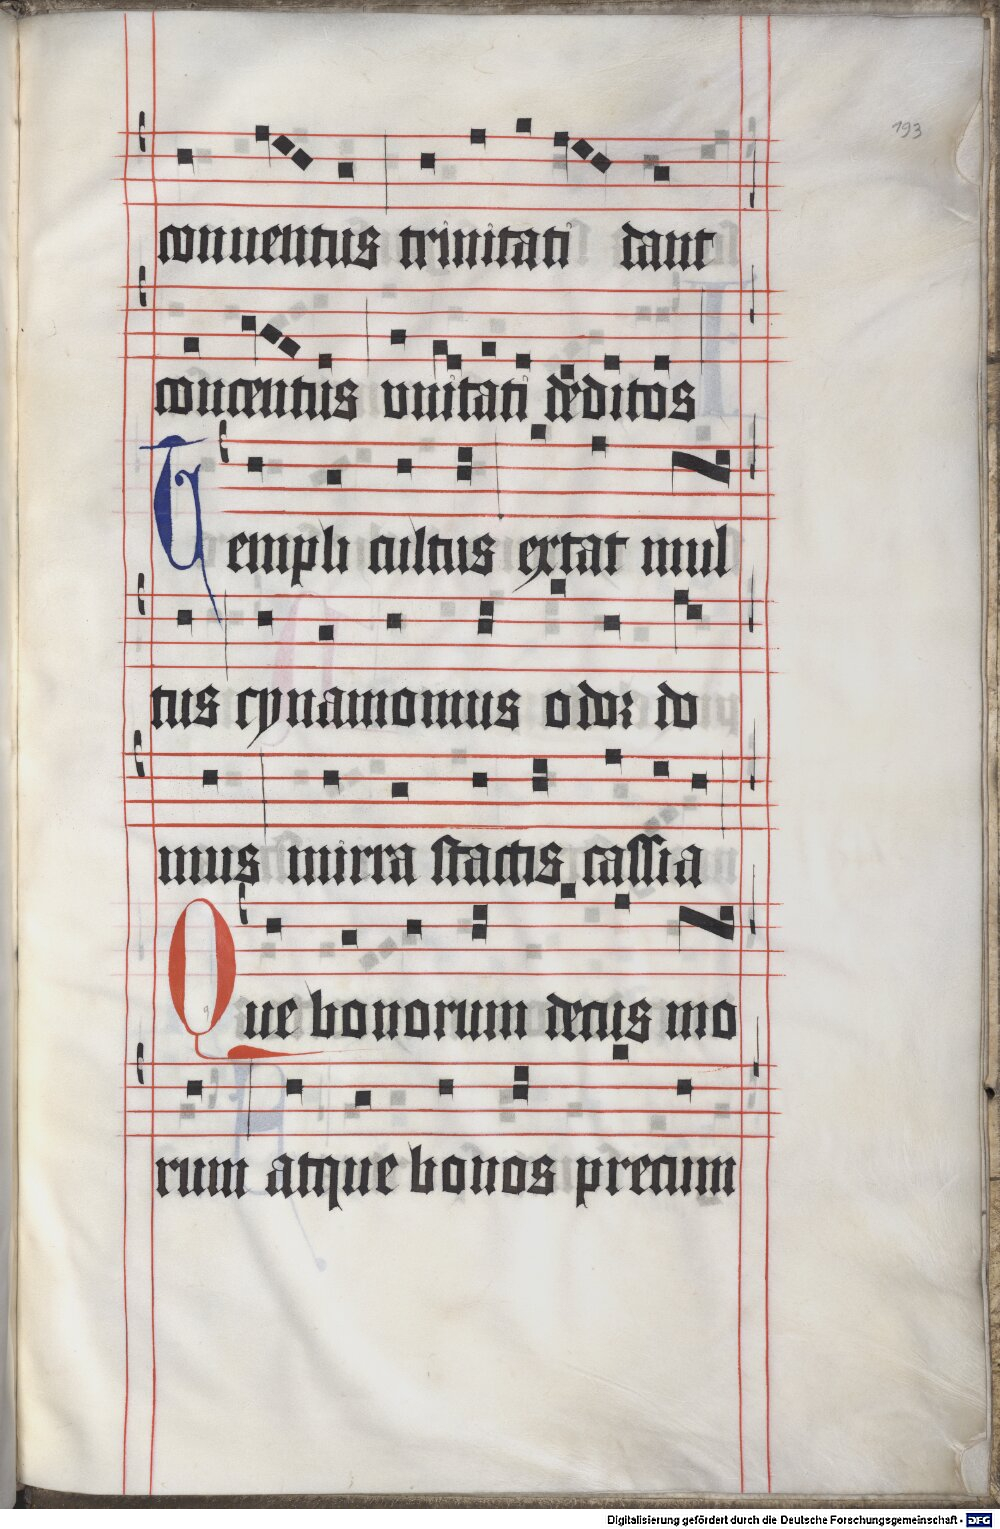 193
conuentus trinitati dant
concentus vnitati deditos
Templi cultus extat mul
tus cynamomus odor do
mus mirra stactis cassia
Que bonorum decus mo
rum atque bonos precum
Digitalisierung gefördert durch die Deutsche Forschungsgemeinschaft - DFG